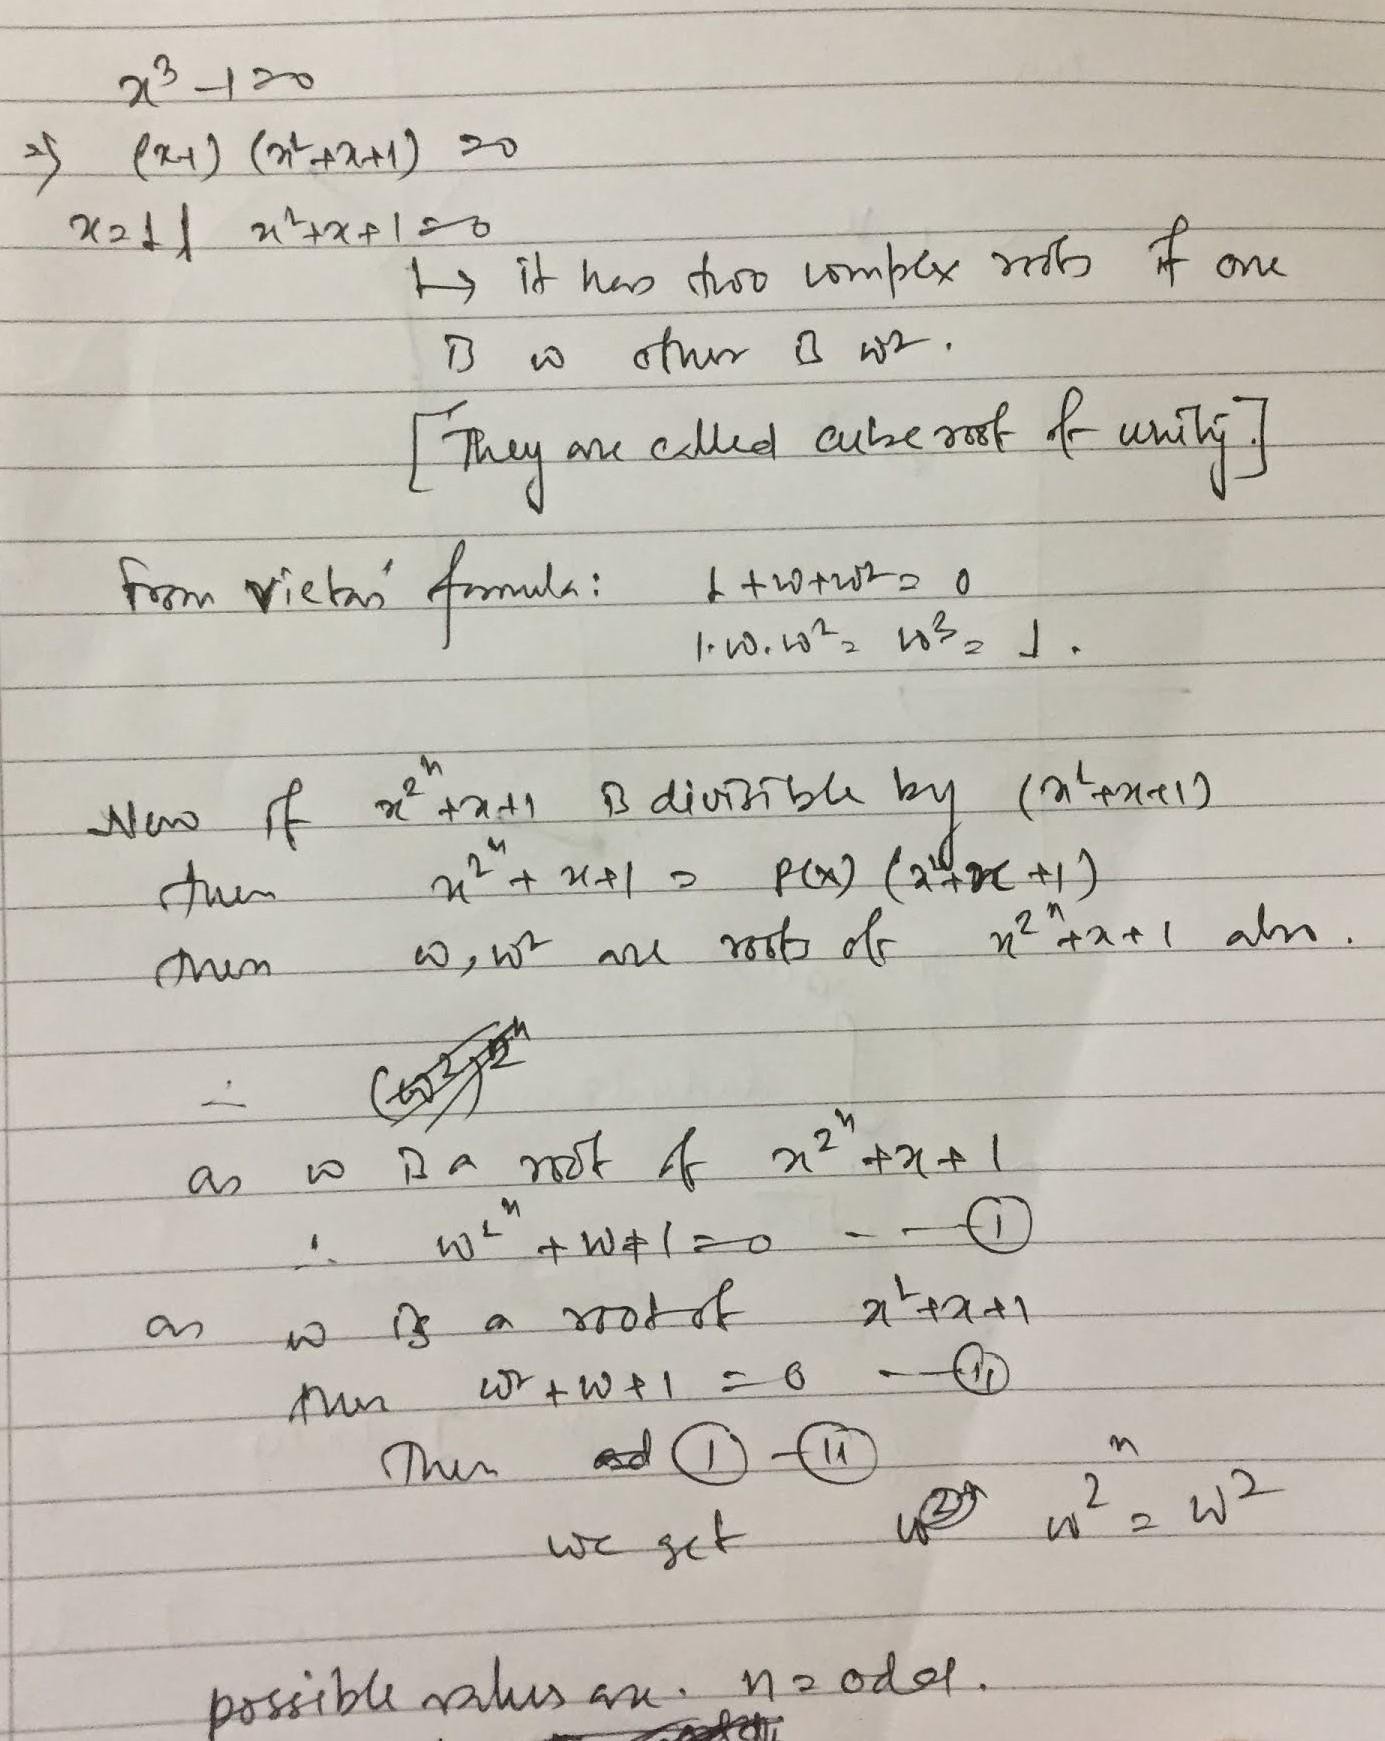 x³ - 1 = 0
⇒ (x-1) (x²+x+1) = 0
x = 1 | x²+x+1 = 0
↳ it has two complex roots if one
is ω other is ω².
[They are called cube root of unity.]
from vietas' formula: 1 + ω + ω² = 0
1.ω.ω² = ω³ = 1.
Now if x^2^n + x + 1 is divisible by (x²+x+1)
then x^2^n + x + 1 = P(x) (x²+x+1)
then ω, ω² are roots of x^2^n + x + 1 also.
∴ (ω²)^2^n
as ω is a root of x^2^n + x + 1
∴ ω^2^n + ω + 1 = 0 -- — (i)
as ω is a root of x²+x+1
then ω² + ω + 1 = 0 -— (ii)
Then (i) - (ii)
we get ω^2^n = ω²
possible values are. n = odd.